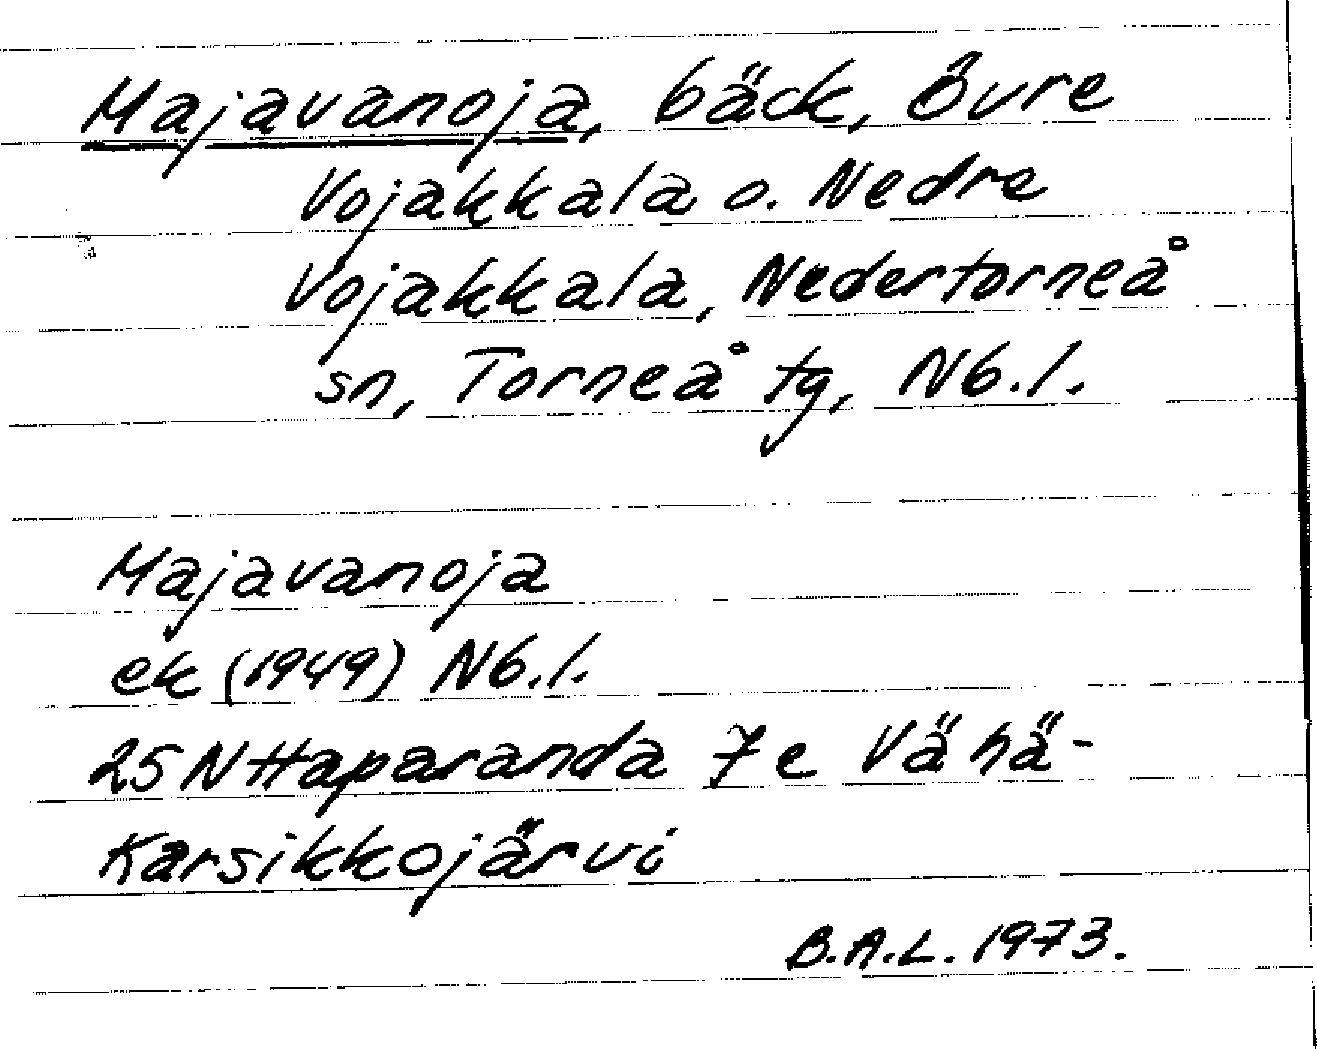 Majavanoja, bäck, Övre
Vojakkala o. Nedre
Vojakkala, Nedertorneå
sn, Torneå tg, Nb.l.
Majavanoja
ek (1949) Nb.l.
25 N Haparanda 7e Vähä-
Karsikkojärvi
B.A.L. 1973.